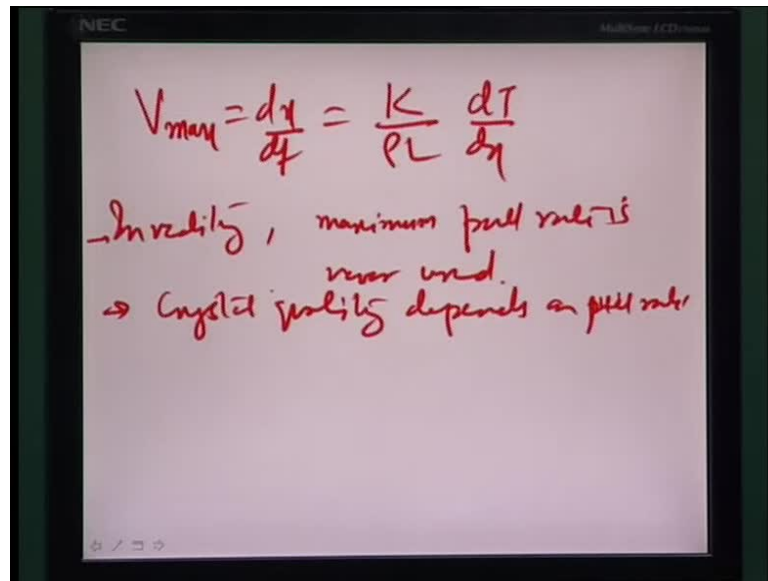 NEC
V_max = dx/dt = K/ρL dT/dx
- In reality, maximum pull rate is
never used.
→ Crystal quality depends on pull rate